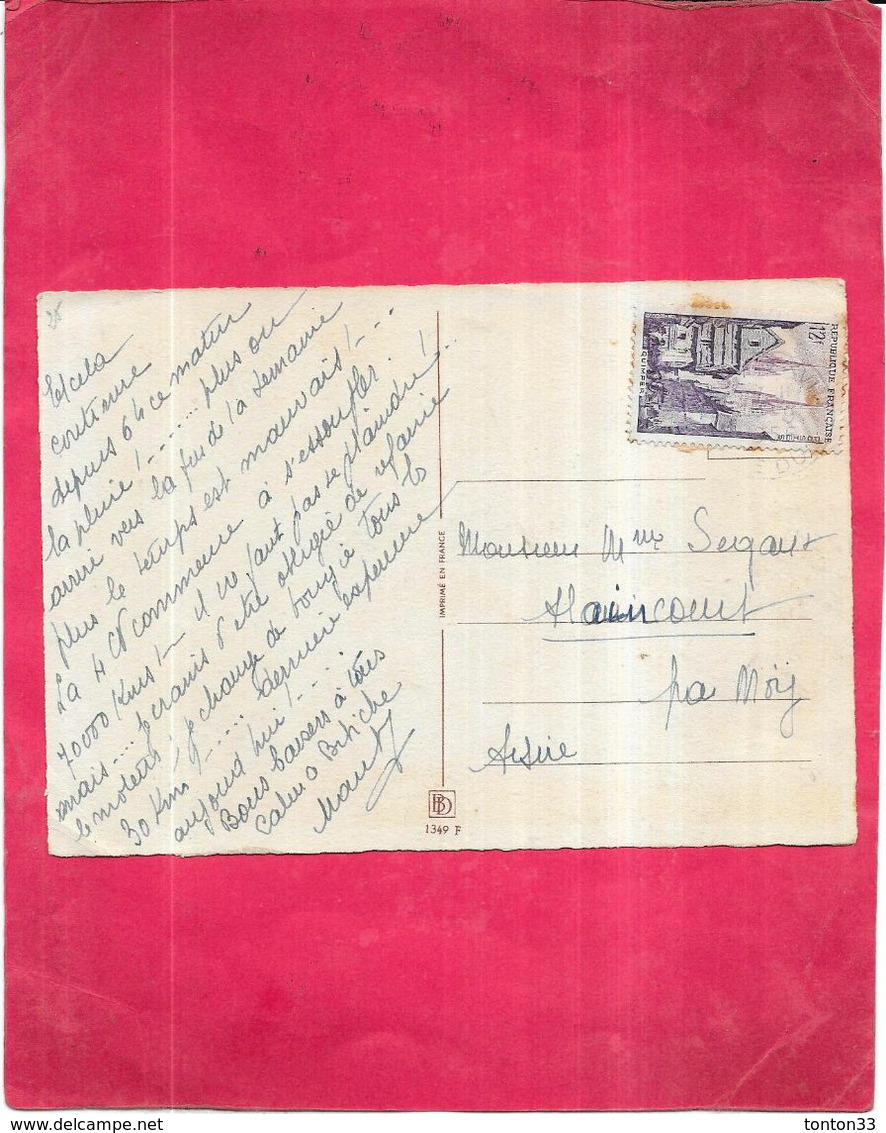 28
Et cela
continue
depuis 6h ce matin
la pluie !....... plus ou
arrive vers la fin de la semaine
plus le temps est mauvais !....
La 4 CV commence à s'essouffler !
70000 Kms !— il ne faut pas se plaindre !...
mais.... je crains d'être obligée de refaire
le moteur, je change de bougie tous les
30 Kms !..... dernière expérience
aujourd'hui !....
Bons baisers à tous
Calino Bibiche
IMPRIMÉ EN FRANCE
BD
1349 F
REPUBLIQUE FRANÇAISE
12F
QUIMPER
Monsieur Mme
Alaincourt
par Moÿ
Aisne
tonton33
www.delcampe.net